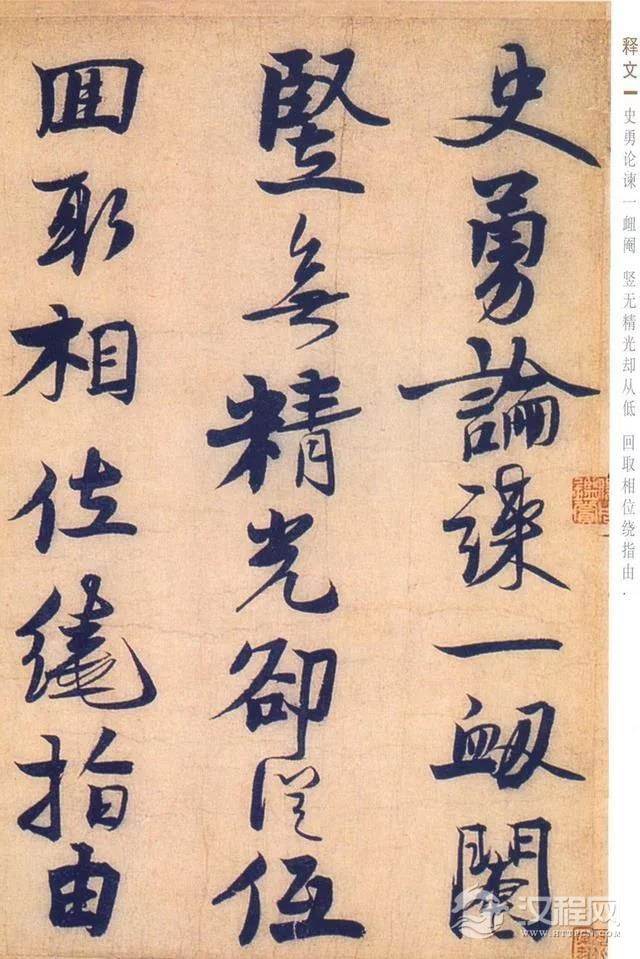 史勇論諫一衂閹
豎無精光卻從低
回取相位繞指由
释文
史勇论谏一衄阉 竖无精光却从低 回取相位绕指由.
汉程网
HTTPCN.COM